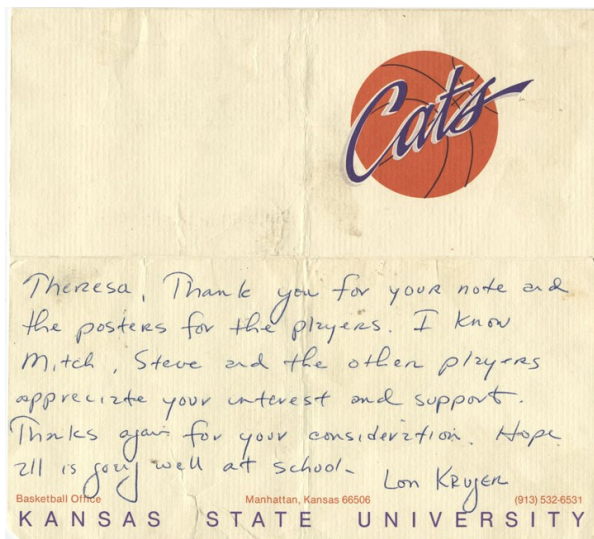 Cats
Theresa, Thank you for your note and
the posters for the players. I know
Mitch, Steve and the other players
appreciate your interest and support.
Thanks again for your consideration. Hope
all is going well at school-
Lon Kruger
Basketball Office Manhattan, Kansas 66506 (913) 532-6531
KANSAS STATE UNIVERSITY